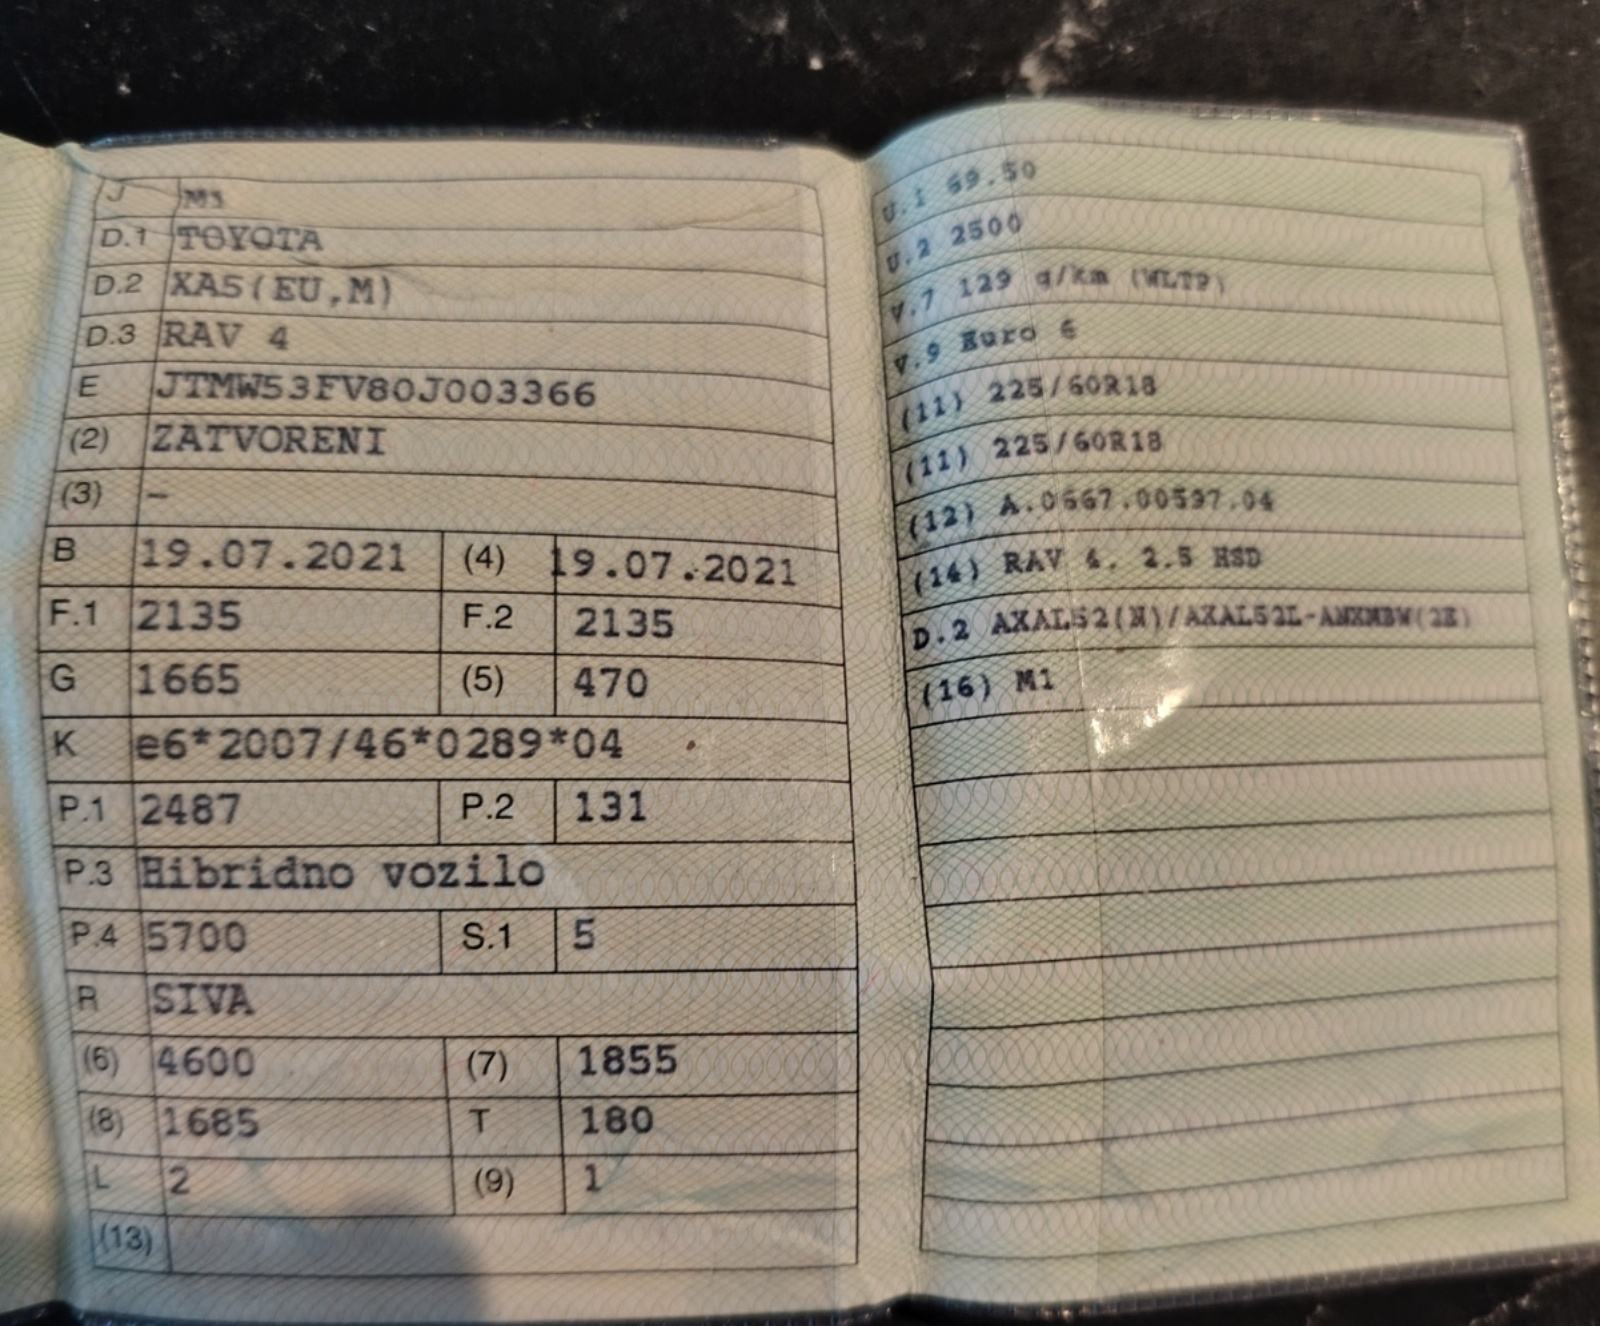 J M1
D.1 TOYOTA
D.2 XA5(EU,M)
D.3 RAV 4
E JTMW53FV80J003366
(2) ZATVORENI
(3) –
B 19.07.2021 (4) 19.07.2021
F.1 2135 F.2 2135
G 1665 (5) 470
K e6*2007/46*0289*04
P.1 2487 P.2 131
P.3 Hibridno vozilo
P.4 5700 S.1 5
R SIVA
(6) 4600 (7) 1855
(8) 1685 T 180
L 2 (9) 1
(13)
U.1 69.50
U.2 2500
V.7 129 g/km (WLTP)
V.9 Euro 6
(11) 225/60R18
(11) 225/60R18
(12) A.0667.00597.04
(14) RAV 4. 2.5 HSD
D.2
(16) M1